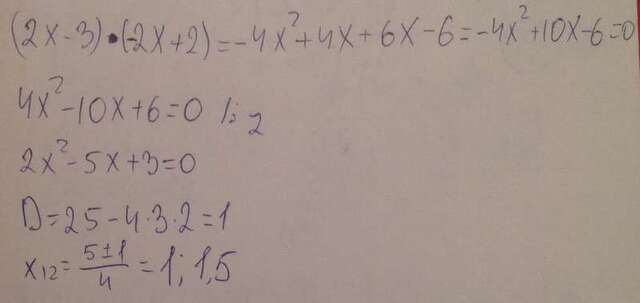 (2x-3)•(-2x+2)=-4x²+4x+6x-6=-4x²+10x-6=0
4x²-10x+6=0 |:2
2x²-5x+3=0
D=25-4·3·2=1
x₁₂=(5±1)/4=1; 1,5